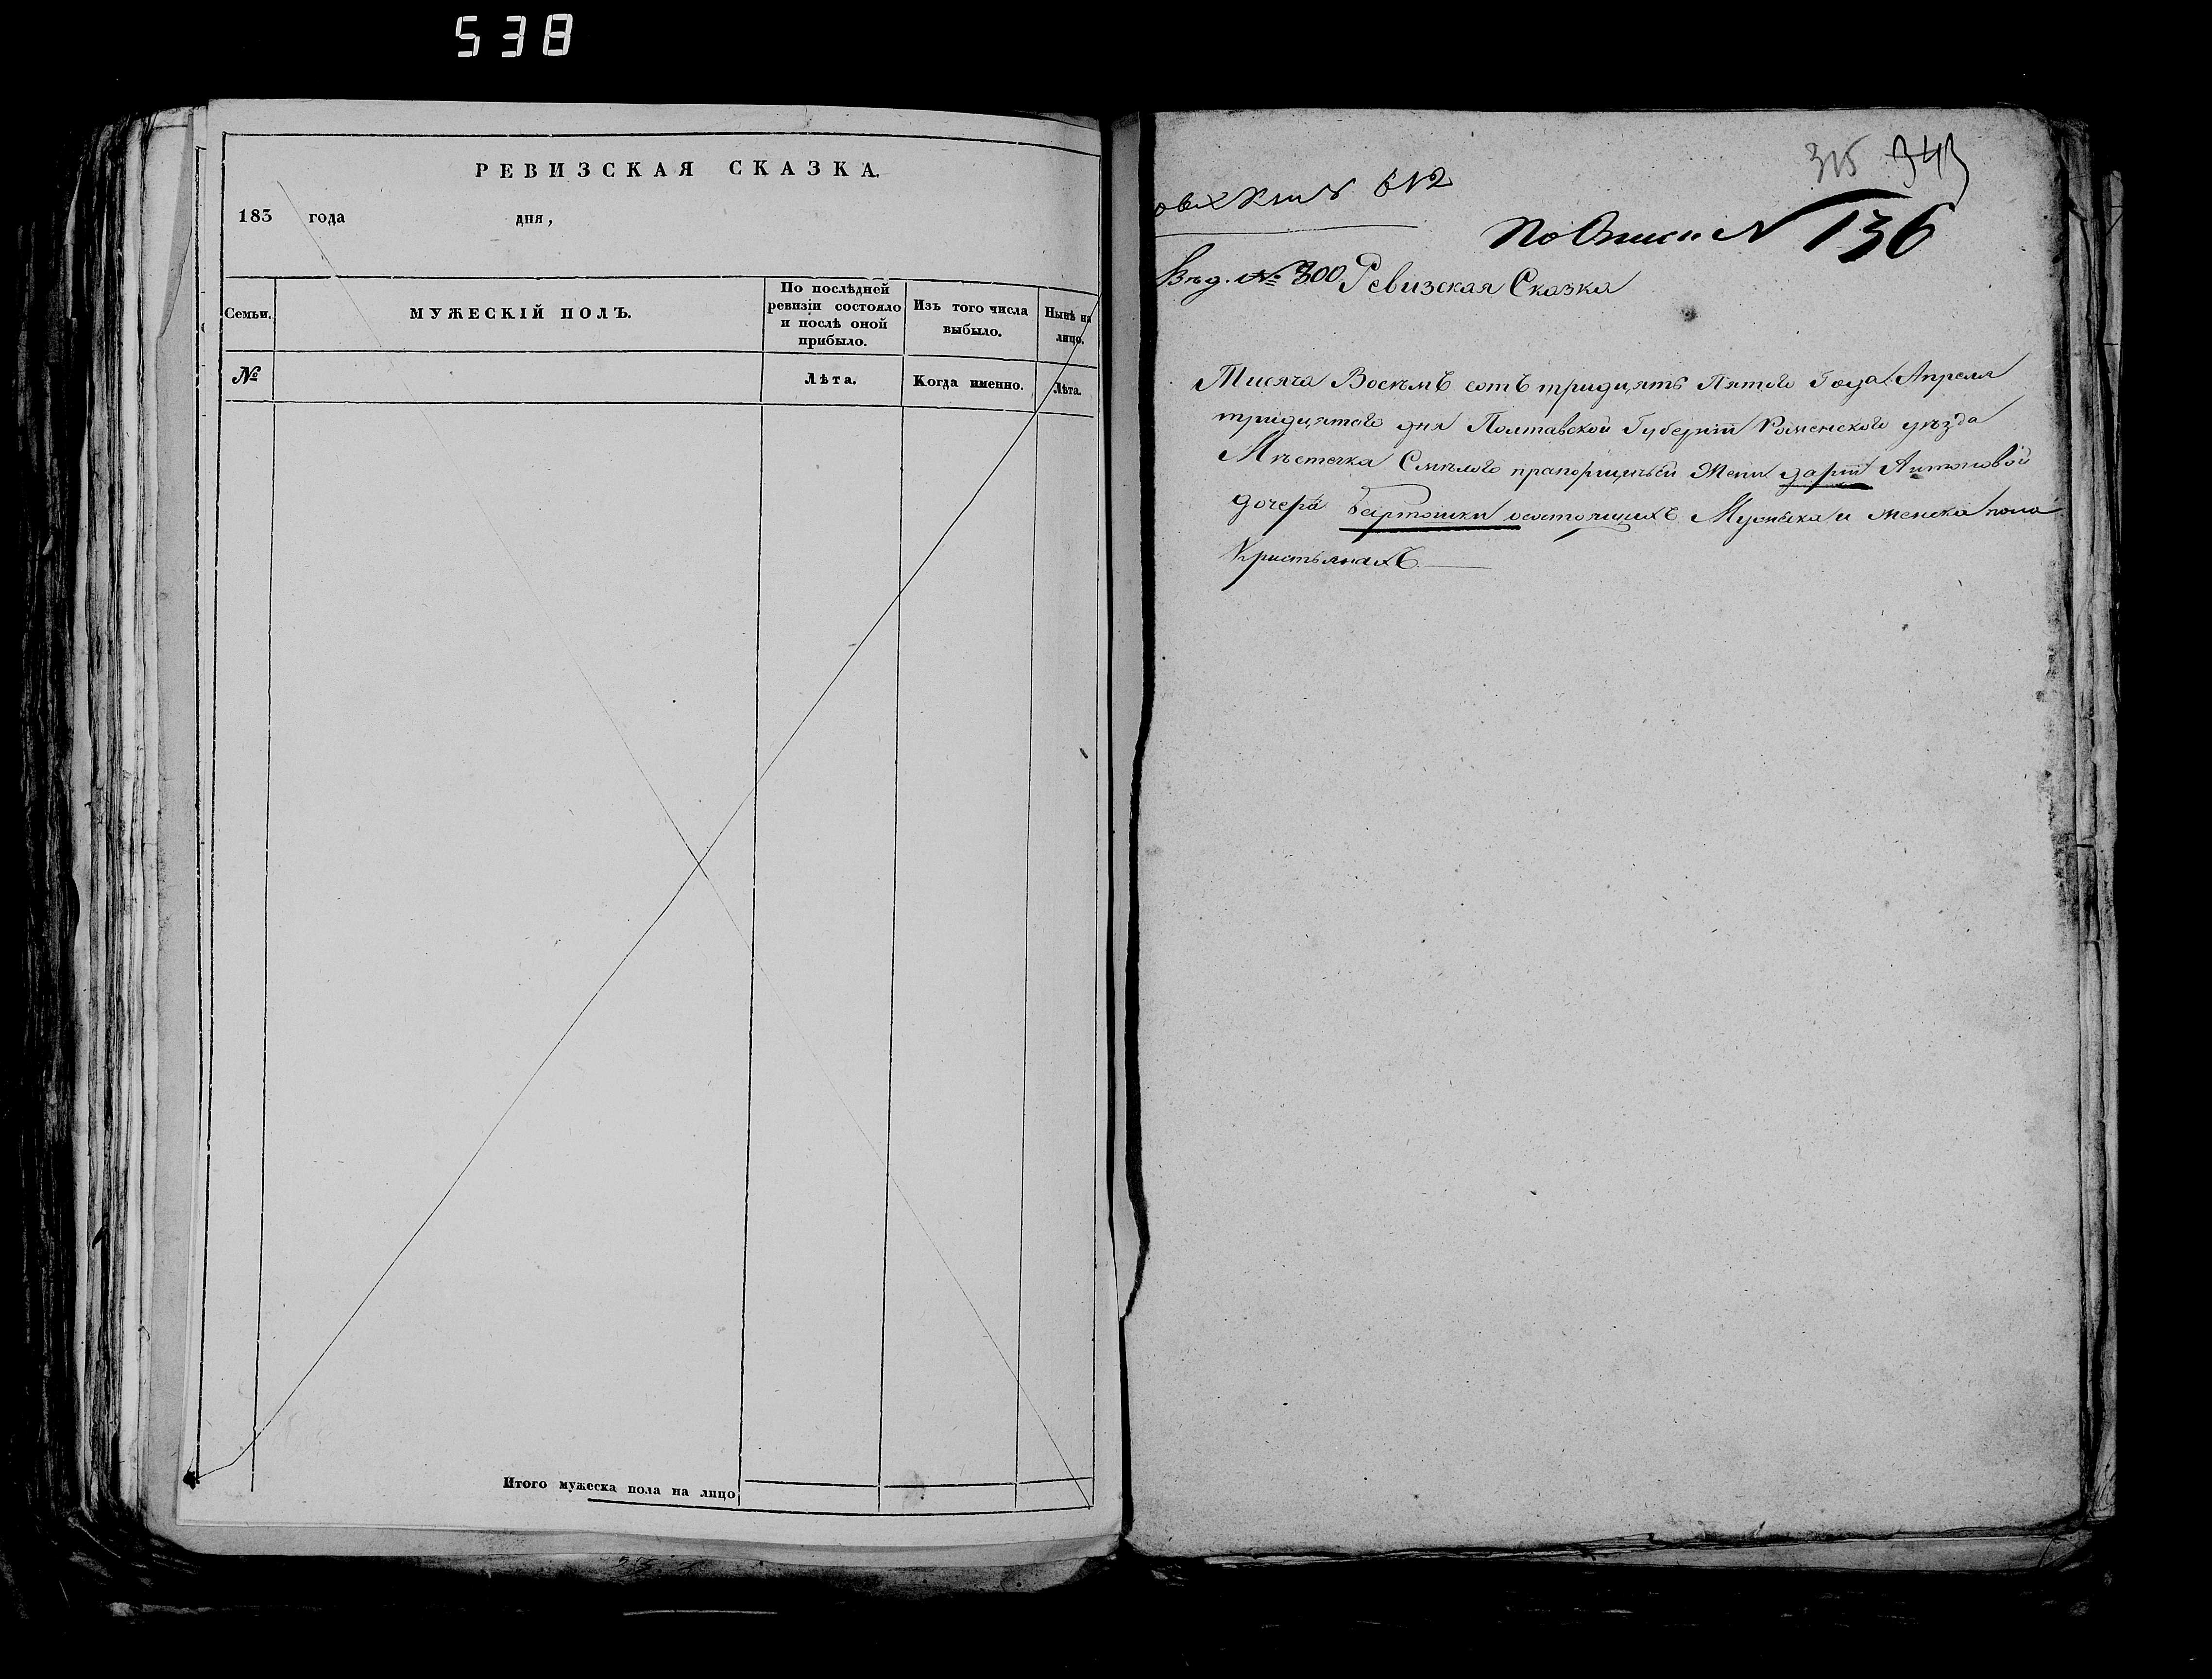 538
РЕВИЗСКАЯ СКАЗКА.
183 года дня,
Семьи. МУЖЕСКІЙ ПОЛЪ. По послѣдней ревизіи состояло и послѣ оной прибыло. Изъ того числа выбыло. Нынѣ на лицо.
№ Лѣта. Когда именно. Лѣта.
Итого мужеска пола на лицо
315 343
612
По Описи N 136
Вѣд. № 300 Ревизская Сказка
Тисяча Восѣмъ сотъ тридцять Пятого Года Апреля
тридцятого дня Полтавской Губерніи Роменского уѣзда
Мѣстечка Смѣлого прапорщичьей Жени Даріи Антоновой
дочери Бартошки состоящихъ Мужеска и женска пола
Кристьянахъ